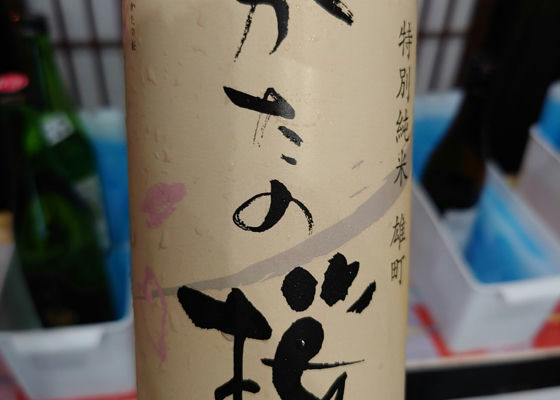 特別純米 雄町
かたの桜